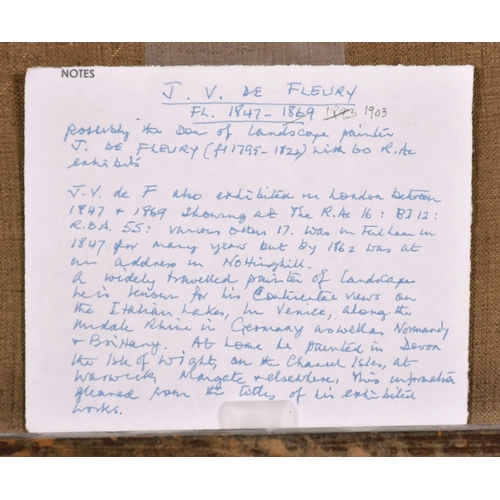 NOTES
J. V. DE FLEURY
FL. 1847 - 1869 1893 1903
Possibly the Son of Landscape painter
J. DE FLEURY (fl 1799-1822) with 60 R.Ac
exhibits
J. V. de F also exhibited in London between
1847 & 1869 showing at The R.Ac 16: BI 12:
R.B.A. 55: various others 17. was in Fulham in
1847 for many years but by 1862 was at
an address in Nottinghill.
A widely travelled painter of Landscape
he is known for his Continental views on
the Italian Lakes, in Venice, along the
Middle Rhine in Germany as well as Normandy
& Brittany. At home he painted in Devon
the Isle of Wight, on the Channel Isles, at
Warwick, Margate & elsewhere, this information
gleaned from the titles of his exhibited
works.